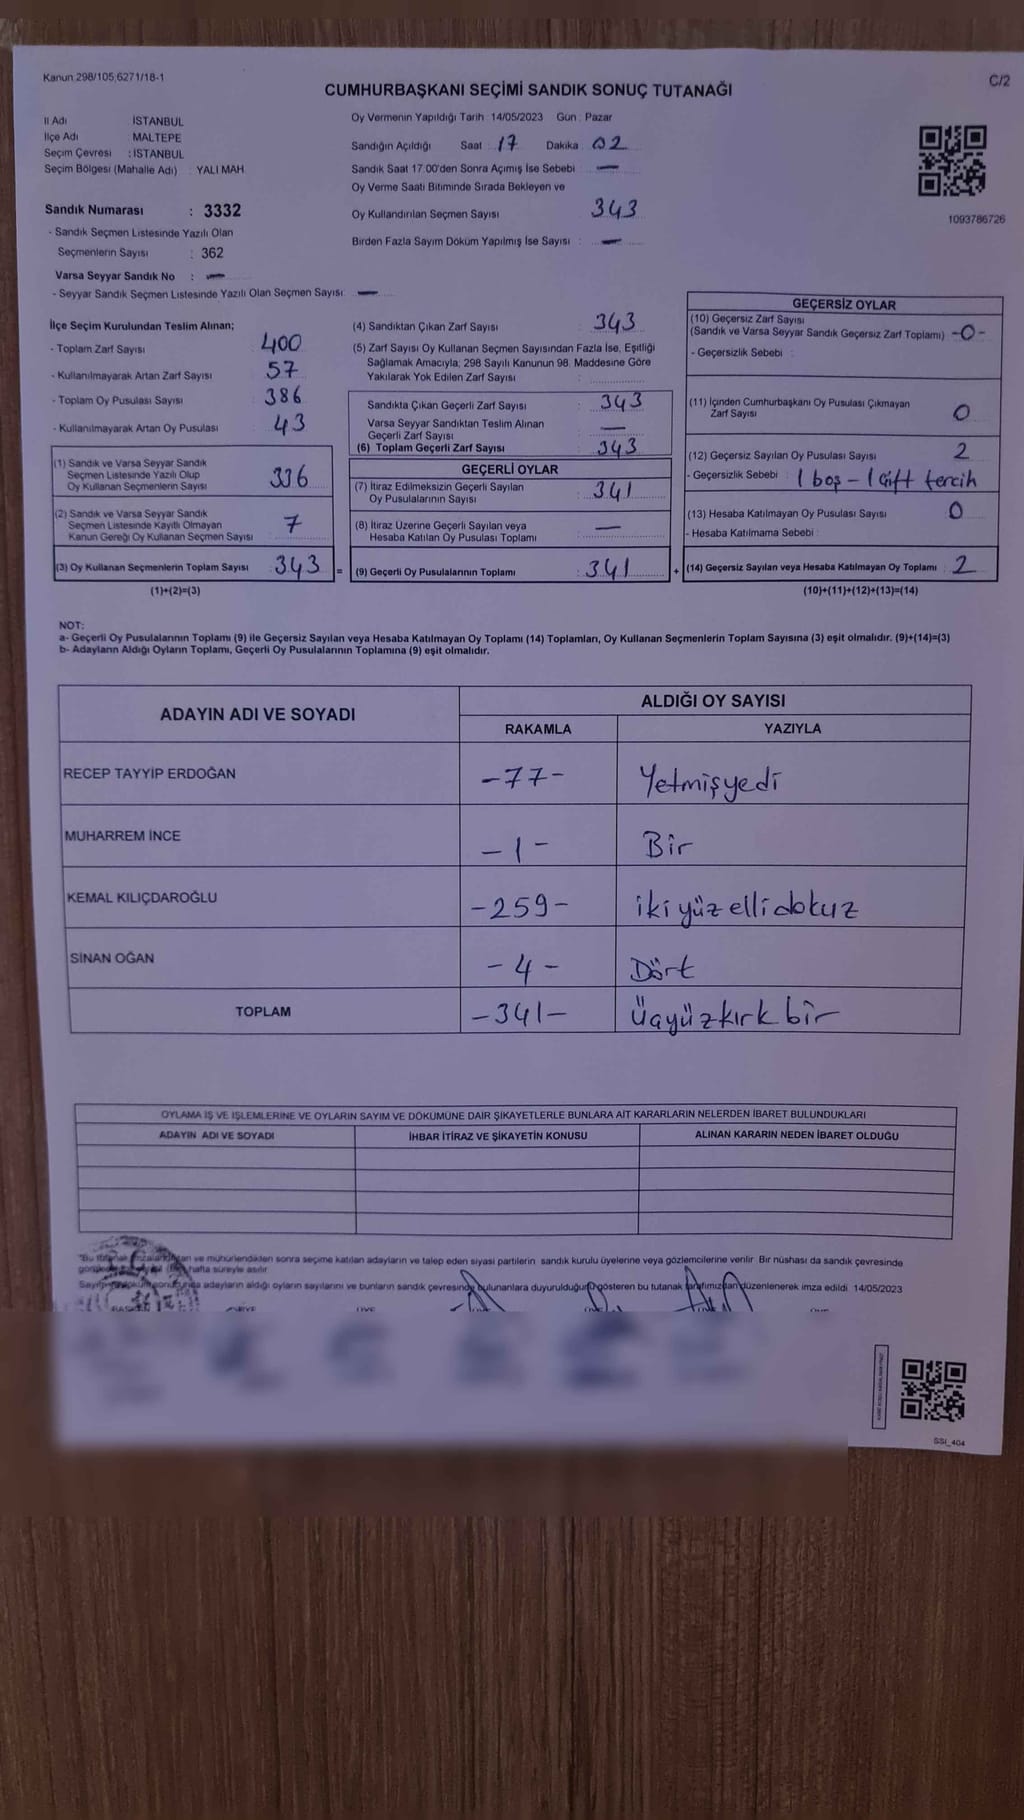 Kanun 298/105;6271/18-1
C/2
CUMHURBAŞKANI SEÇİMİ SANDIK SONUÇ TUTANAĞI
İl Adı İSTANBUL
İlçe Adı MALTEPE
Seçim Çevresi : İSTANBUL
Seçim Bölgesi (Mahalle Adı) : YALI MAH.
Sandık Numarası : 3332
- Sandık Seçmen Listesinde Yazılı Olan
Seçmenlerin Sayısı : 362
Varsa Seyyar Sandık No : —
- Seyyar Sandık Seçmen Listesinde Yazılı Olan Seçmen Sayısı: —
Oy Vermenin Yapıldığı Tarih : 14/05/2023 Gün : Pazar
Sandığın Açıldığı Saat : 17 Dakika : 02
Sandık Saat 17.00'den Sonra Açımış İse Sebebi : —
Oy Verme Saati Bitiminde Sırada Bekleyen ve
Oy Kullandırılan Seçmen Sayısı : 343
Birden Fazla Sayım Döküm Yapılmış İse Sayısı : —
1093786726
İlçe Seçim Kurulundan Teslim Alınan;
- Toplam Zarf Sayısı : 400
- Kullanılmayarak Artan Zarf Sayısı : 57
- Toplam Oy Pusulası Sayısı : 386
- Kullanılmayarak Artan Oy Pusulası : 43
(1) Sandık ve Varsa Seyyar Sandık
Seçmen Listesinde Yazılı Olup
Oy Kullanan Seçmenlerin Sayısı : 336
(2) Sandık ve Varsa Seyyar Sandık
Seçmen Listesinde Kayıtlı Olmayan
Kanun Gereği Oy Kullanan Seçmen Sayısı : 7
(3) Oy Kullanan Seçmenlerin Toplam Sayısı : 343 =
(1)+(2)=(3)
(4) Sandıktan Çıkan Zarf Sayısı : 343
(5) Zarf Sayısı Oy Kullanan Seçmen Sayısından Fazla İse, Eşitliği
Sağlamak Amacıyla; 298 Sayılı Kanunun 98. Maddesine Göre
Yakılarak Yok Edilen Zarf Sayısı :
Sandıkta Çıkan Geçerli Zarf Sayısı : 343
Varsa Seyyar Sandıktan Teslim Alınan
Geçerli Zarf Sayısı : —
(6) Toplam Geçerli Zarf Sayısı : 343
GEÇERLİ OYLAR
(7) İtiraz Edilmeksizin Geçerli Sayılan
Oy Pusulalarının Sayısı : 341
(8) İtiraz Üzerine Geçerli Sayılan veya
Hesaba Katılan Oy Pusulası Toplamı : —
(9) Geçerli Oy Pusulalarının Toplamı : 341 +
GEÇERSİZ OYLAR
(10) Geçersiz Zarf Sayısı
(Sandık ve Varsa Seyyar Sandık Geçersiz Zarf Toplamı) : -0-
- Geçersizlik Sebebi :
(11) İçinden Cumhurbaşkanı Oy Pusulası Çıkmayan
Zarf Sayısı : 0
(12) Geçersiz Sayılan Oy Pusulası Sayısı : 2
- Geçersizlik Sebebi : 1 boş - 1 Çift tercih
(13) Hesaba Katılmayan Oy Pusulası Sayısı : 0
- Hesaba Katılmama Sebebi :
(14) Geçersiz Sayılan veya Hesaba Katılmayan Oy Toplamı : 2
(10)+(11)+(12)+(13)=(14)
NOT:
a- Geçerli Oy Pusulalarının Toplamı (9) ile Geçersiz Sayılan veya Hesaba Katılmayan Oy Toplamı (14) Toplamları, Oy Kullanan Seçmenlerin Toplam Sayısına (3) eşit olmalıdır. (9)+(14)=(3)
b- Adayların Aldığı Oyların Toplamı, Geçerli Oy Pusulalarının Toplamına (9) eşit olmalıdır.
ADAYIN ADI VE SOYADI ALDIĞI OY SAYISI
RAKAMLA YAZIYLA
RECEP TAYYİP ERDOĞAN -77- Yetmişyedi
MUHARREM İNCE -1- Bir
KEMAL KILIÇDAROĞLU -259- iki yüz elli dokuz
SİNAN OĞAN -4- Dört
TOPLAM -341- Üçyüzkırk bir
OYLAMA İŞ VE İŞLEMLERİNE VE OYLARIN SAYIM VE DÖKÜMÜNE DAİR ŞİKAYETLERLE BUNLARA AİT KARARLARIN NELERDEN İBARET BULUNDUKLARI
ADAYIN ADI VE SOYADI İHBAR İTİRAZ VE ŞİKAYETİN KONUSU ALINAN KARARIN NEDEN İBARET OLDUĞU
ve mühürlendikten sonra seçime katılan adayların ve talep eden siyasi partilerin sandık kurulu üyelerine veya gözlemcilerine verilir. Bir nüshası da sandık çevresinde
hafta süreyle asılır.
adayların aldığı oyların sayılarını ve bunların sandık çevresinde bulunanlara duyurulduğunu gösteren bu tutanak tarafımızdan düzenlenerek imza edildi. 14/05/2023
SSI_404